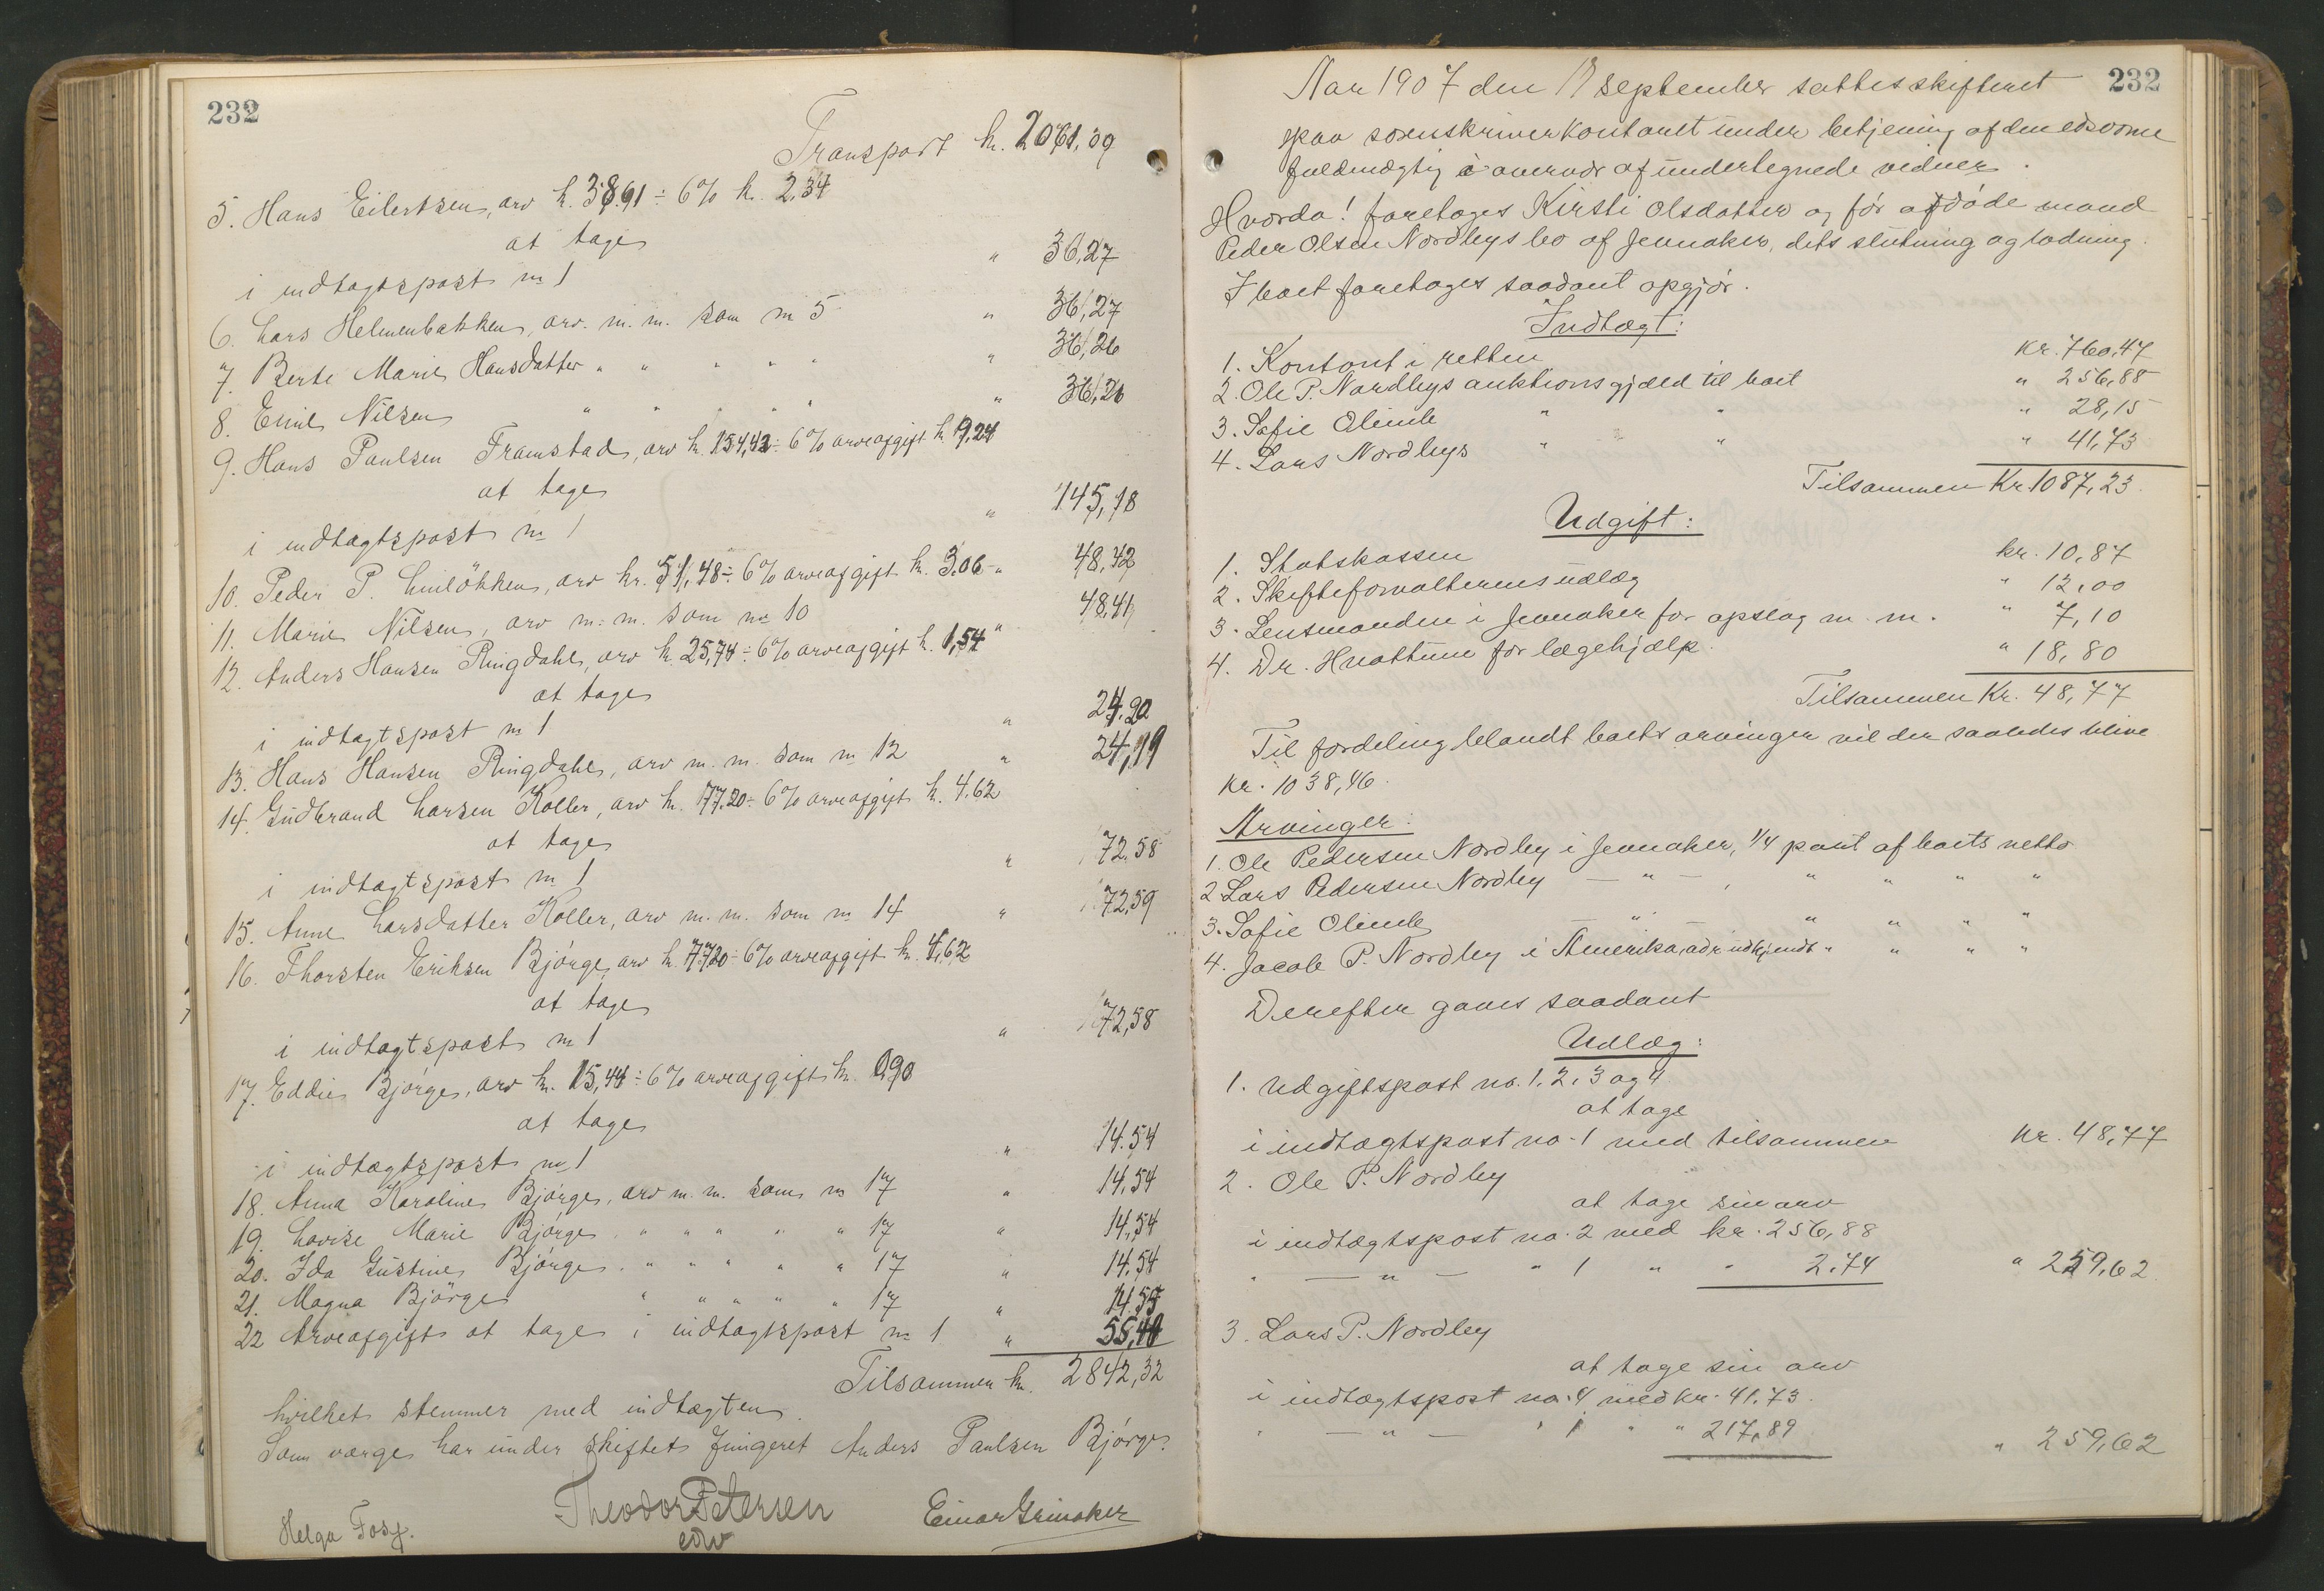 232
Transport kr. 2061,09
5. Hans Eilertsen, arv k. 38,61 ÷ 6% kr. 2,34
at tage
i indtægtspost no 1 " 36,27
6. Lars Helmenbakken, arv. m. m. som no 5 " 36,27
7. Berte Marie Hansdatter " " " " " 36,26
8. Emil Nilsen " " " " " 36,26
9. Hans Paulsen Framstad, arv kr. 154,42 ÷ 6% arveafgift kr. 9,24
at tage
i indtægtspost no 1 " 145,18
10. Peder P. Linlökken, arv kr. 51,48 ÷ 6% arveafgift kr. 3,06 " 48,42
11. Marie Nilsen, arv m. m. som no 10 " 48,41
12. Anders Hansen Ringdahl, arv kr. 25,74 ÷ 6% arveafgift k. 1,54
at tage
i indtægtspost no 1 " 24,20
13. Hans Hansen Ringdahl, arv m. m. som no 12 " 24,19
14. Gudbrand Larsen Koller, arv kr. 77,20 ÷ 6% arveafgift k. 4,62
at tage
i indtægtspost no 1 " 72,58
15. Anne Larsdatter Koller, arv m. m. som no 14 " 72,59
16. Thorsten Eriksen Bjørge, arv k. 77,20 ÷ 6% arveafgift kr. 4,62
at tage
i indtægtspost no 1 " 72,58
17. Eddie Bjørge, arv kr. 15,44 ÷ 6% arveafgift kr. 0,90
at tage
i indtægtspost no 1 " 14,54
18. Anna Karoline Bjørge, arv m. m. som no 17 " 14,54
19. Lovise Marie Bjørge " " " " " 17 " 14,54
20. Ida Gustine Bjørge " " " " " 17 " 14,54
21. Magna Bjørge " " " " " 17 " 14,55
22 Arveafgift at tage i indtægtspost no 1 " 55,40
Tilsammen kr. 2842,32
hvilket stemmer med indtægten.
Som værge har under skiftet fungeret Anders Paulsen Bjørge.
Helga Foss. Theodor Petersen Einar Grinaker
edv
232
Aar 1907 den 17 september sattes skifteret
paa sorenskriverkontoret under betjening af den edsvorne
fuldmægtig i overvær af undertegnede vidner.
Hvorda! foretages Kirsti Olsdatter og før afdøde mand
Peder Olsen Nordbys bo af Jevnaker, dets slutning og lodning.
I boet foretages saadant opgjör.
Indtægt:
1. Kontant i retten kr. 760,47
2. Ole P. Nordbys auktionsgjæld til boet " 256,88
3. Sofie Olimb " " " 28,15
4. Lars Nordbys " " " 41,73
Tilsammen Kr. 1087,23.
Udgift:
1. Statskassen kr. 10,87
2. Skifteforvalterens udlæg " 12,00
3. Lensmanden i Jevnaker for opslag m. m. " 7,10
4. Dr. Hvattum for lægehjælp. " 18,80
Tilsammen Kr. 48,77
Til fordeling blandt boets arvinger vil der saaledes blive
kr. 1038,46.
Arvinger:
1. Ole Pedersen Nordby i Jevnaker, 1/4 part af boets netto
2. Lars Pedersen Nordby — " —, " " " "
3. Sofie Olimb — " — " " " "
4. Jacob P. Nordby i Amerika, adr. udkjendt " " " "
Derefter gaves saadant
Udlæg:
1. Udgiftspost no. 1, 2, 3 og 4
at tage
i indtægtspost no. 1 med tilsammen kr. 48,77
2. Ole P. Nordby
at tage sin arv
i indtægtspost no. 2 med kr. 256,88
" — " — " 1 " " 2,74 " 259,62.
3. Lars P. Nordby
at tage sin arv
i indtægtspost no. 4 med kr. 41,73.
" — " — " 1 " " 217,89 " 259,62